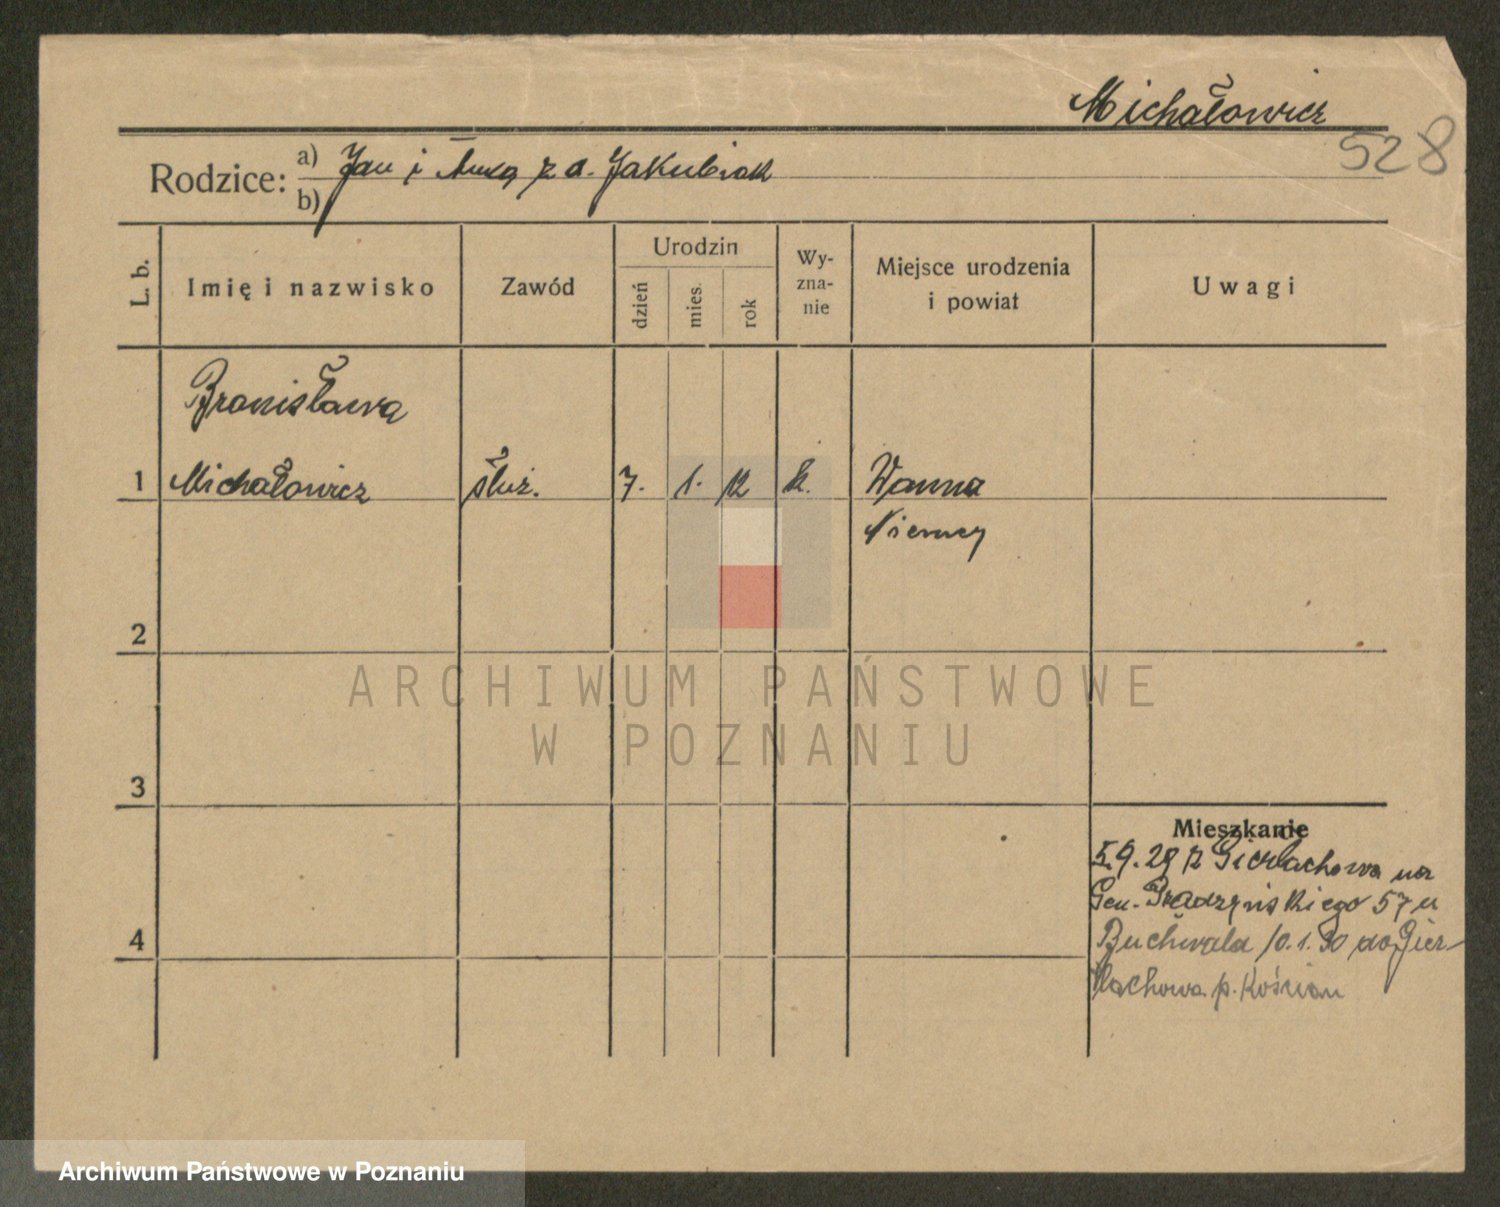 Michałowicz
528
Rodzice: a) Jan i Anna z d. Jakubiak
b)
L. b.
Imię i nazwisko
Zawód
Urodzin
dzień
mies.
rok
Wy-
zna-
nie
Miejsce urodzenia
i powiat
Uwagi
Bronisława
1 Michałowicz służ. 7. 1. 12 k. Wanna
Niemcy
2
3
4
Mieszkanie
5.9.29 z Gierłachowa na
Gen. Prądzyńskiego 57 u
Buchwala 10.1.30 do Gier-
łachowa p. Kościan
ARCHIWUM PAŃSTWOWE
W POZNANIU
Archiwum Państwowe w Poznaniu